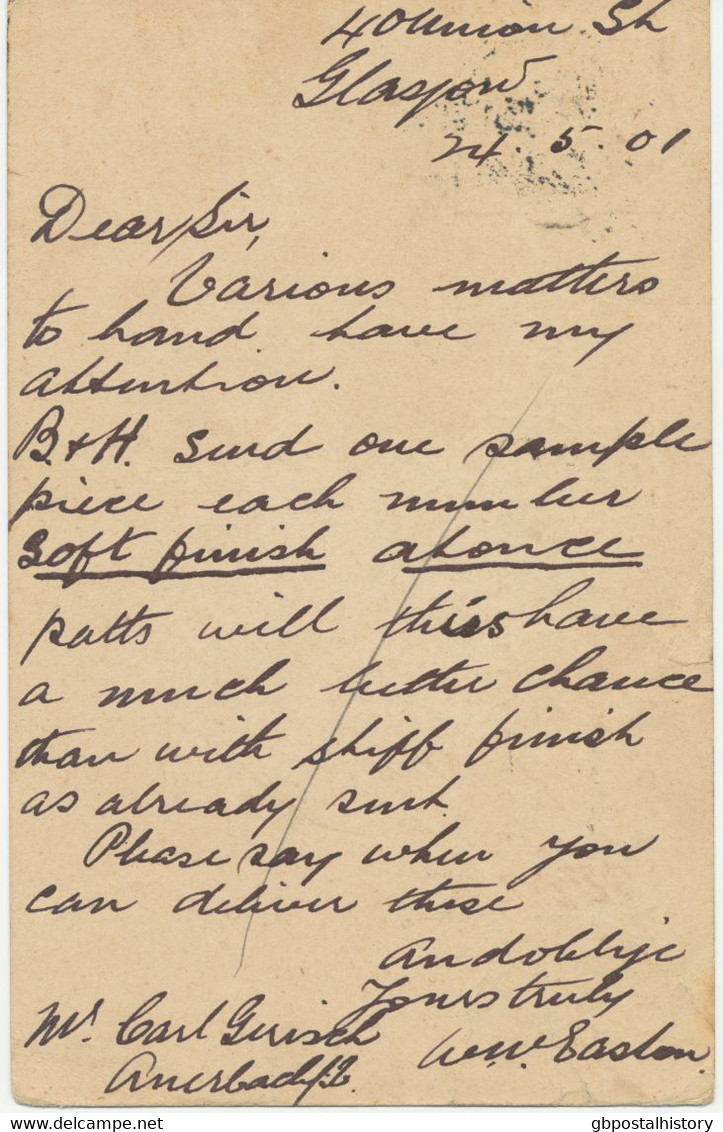 40 Union St
Glasgow
24. 5. 01
Dear Sir,
Various matters
to hand have my
attention.
B. & H. Send one sample
piece each number
soft finish at once
patts will thus have
a much better chance
than with stiff finish
as already sent.
Please say when you
can deliver these
and oblige
Yours truly
W. W. Easton.
Mr. Carl Gerisch
Auerbach i. V.
gbpostalhistory